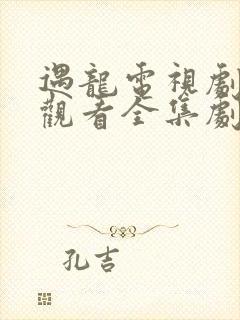 遇龍電視劇
觀看全集劇
孔吉